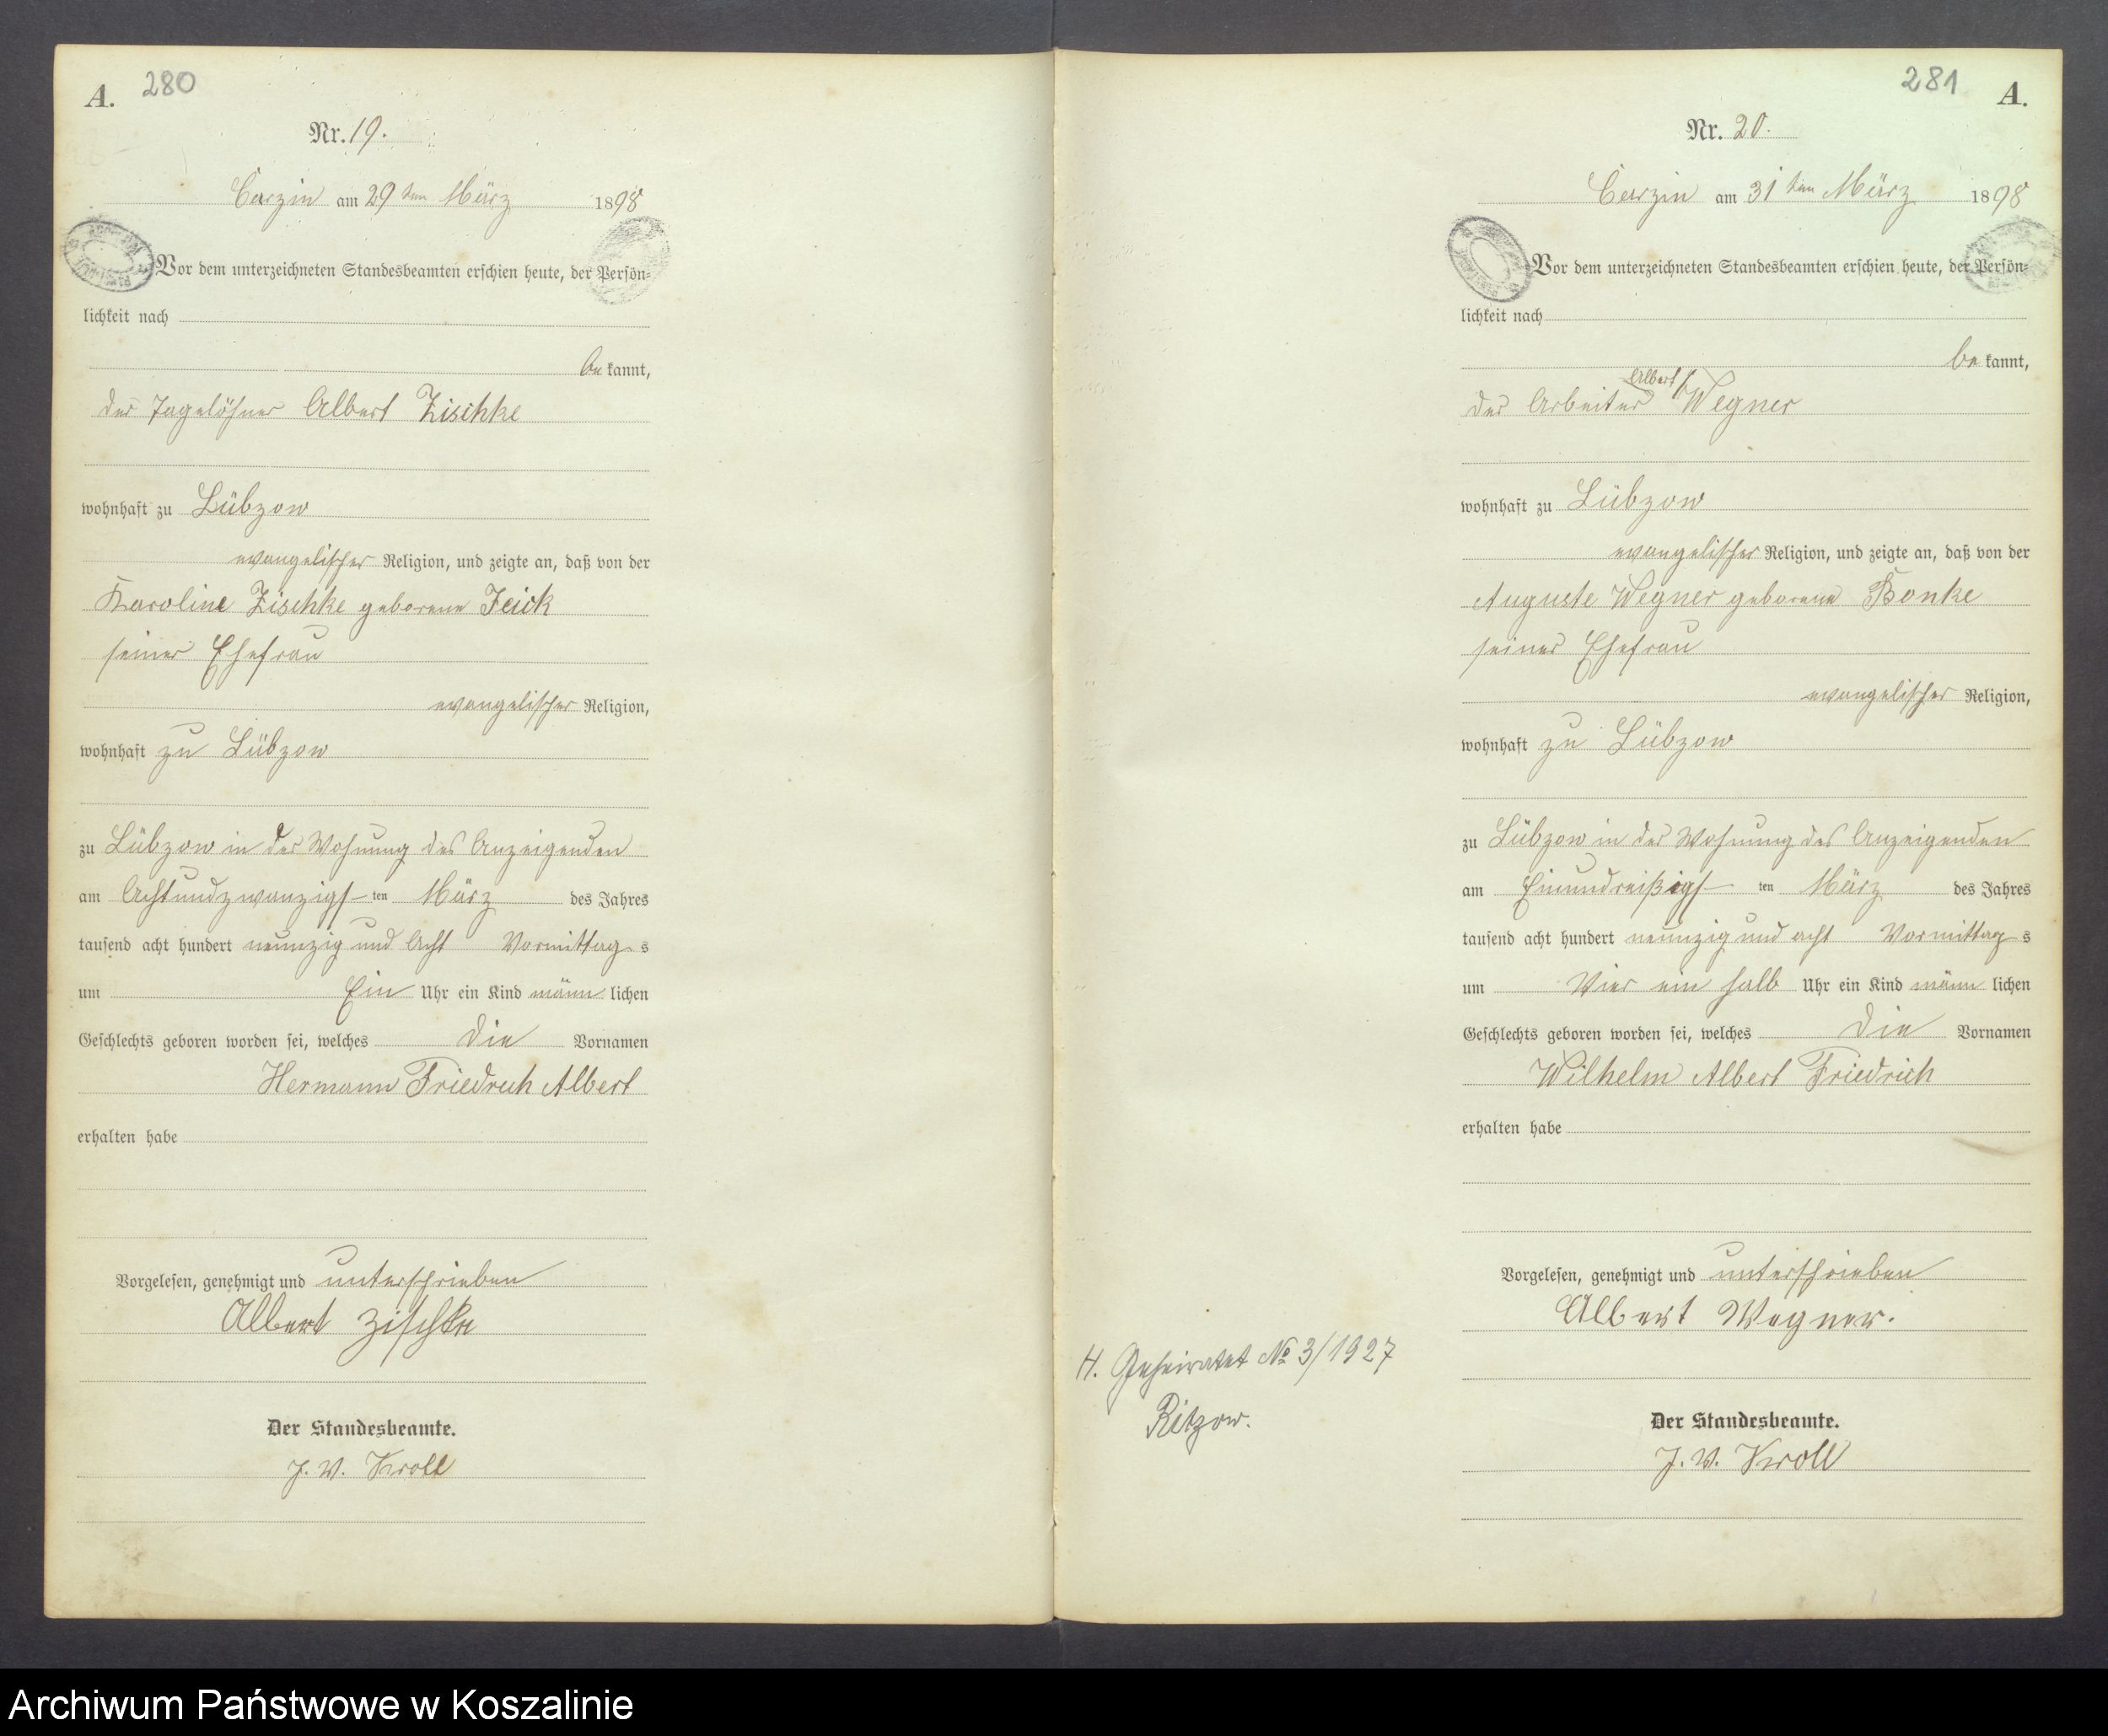 A. 280
Nr. 19.
Carzin am 29ten März 1898
Vor dem unterzeichneten Standesbeamten erschien heute, der Persön-
lichkeit nach
be kannt,
der Tagelöhner Albert Zischke
wohnhaft zu Lübzow
evangelischer Religion, und zeigte an, daß von der
Karoline Zischke geborene Jeick
seiner Ehefrau
evangelischer Religion,
wohnhaft zu Lübzow
zu Lübzow in der Wohnung des Anzeigenden
am Achtundzwanzigst ten März des Jahres
tausend acht hundert neunzig und Acht Vormittag s
um Ein Uhr ein Kind männ lichen
Geschlechts geboren worden sei, welches die Vornamen
Hermann Friedrich Albert
erhalten habe
Vorgelesen, genehmigt und unterschrieben
Albert Zischke
Der Standesbeamte.
J. V. Kroll
281 A.
Nr. 20.
Carzin am 31ten März 1898
Vor dem unterzeichneten Standesbeamten erschien heute, der Persön-
lichkeit nach
be kannt,
der Arbeiter Albert Wegner
wohnhaft zu Lübzow
evangelischer Religion, und zeigte an, daß von der
Auguste Wegner geborene Bonke
seiner Ehefrau
evangelischer Religion,
wohnhaft zu Lübzow
zu Lübzow in der Wohnung des Anzeigenden
am Einundreißigst ten März des Jahres
tausend acht hundert neunzig und acht Vormittag s
um Vier ein halb Uhr ein Kind männ lichen
Geschlechts geboren worden sei, welches die Vornamen
Wilhelm Albert Friedrich
erhalten habe
Vorgelesen, genehmigt und unterschrieben
Albert Wegner.
H. Geheiratet № 3/1927
Ritzow.
Der Standesbeamte.
J. V. Kroll
Archiwum Państwowe w Koszalinie